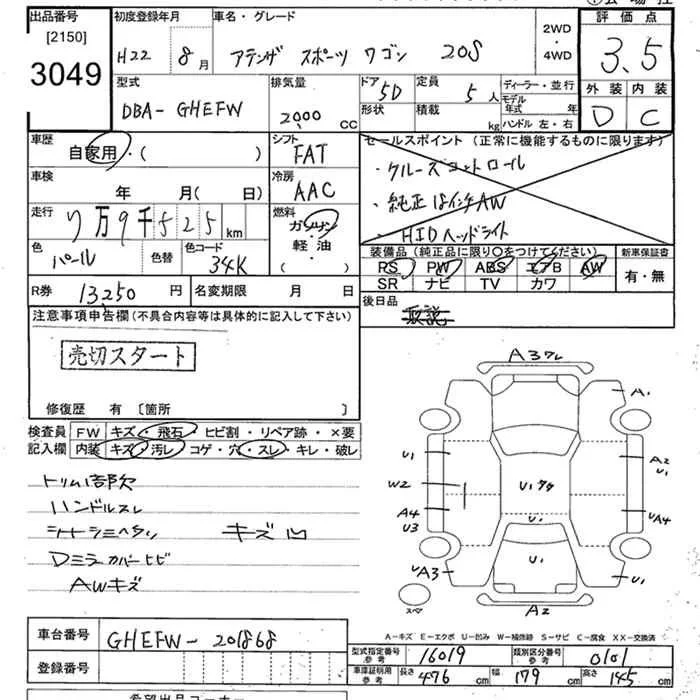 出品番号 初度登録年月 車名・グレード 評価点
[2150]
3049 H22 8月 アテンザ スポーツ ワゴン 20S 2WD・4WD 3.5
型式 排気量 ドア 5D 定員 5人 ディーラー・並行 外装 内装
DBA-GHEFW 2000 CC 形状 積載 kg モデル年式 年 ハンドル 左・右 D C
車歴 シフト セールスポイント (正常に機能するものに限ります)
自家用・( ) FAT ・クルーズコントロール
車検 冷房 ・純正18インチAW
年 月( 日) AAC ・HIDヘッドライト
走行 7万9千525km 燃料 ガソリン
軽・油
( )
色 パール 色替 色コード 34K
装備品 (純正品に限り○をつけてください) 新車保証書
PS PW ABS エアB AW 有・無
SR ナビ TV カワ
R券 13250円 名変期限 月 日 後日品
取説
注意事項申告欄(不具合内容等は具体的に記入して下さい)
売切スタート
修復歴 有 〔箇所 〕
検査員 FW キズ・飛石・ヒビ割・リペア跡・×要
記入欄 内装 キズ・汚レ・コゲ・穴・スレ・キレ・破レ
ハンドルスレ
キズ凹
Dミラカバーヒビ
AWキズ
A3ワレ
A1
U1 A2
U1
W2 U1タタ
A4 UA4
U3 U1
UA3 U1 U1
スペア A2
A-キズ E-エクボ U-凹み W-補修跡 S-サビ C-腐食 XX-交換済
車台番号 GHEFW-201868
型式指定番号 参考 16019 類別区分番号 参考 0101
登録番号 車庫証明用 参考 長さ 476cm 幅 179cm 高さ 145cm
希望出品コーナー